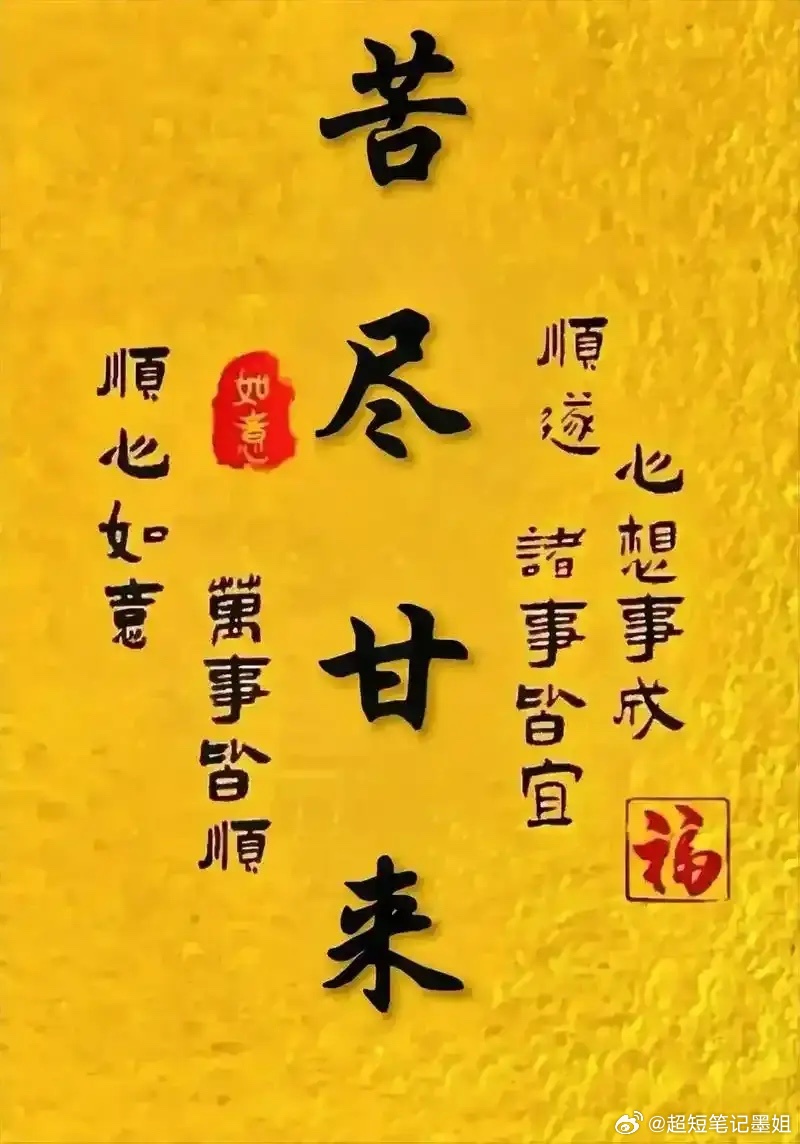 心想事成
福
順遂
諸事皆宜
苦尽甘来
如意
萬事皆順
順心如意
@超短笔记墨姐